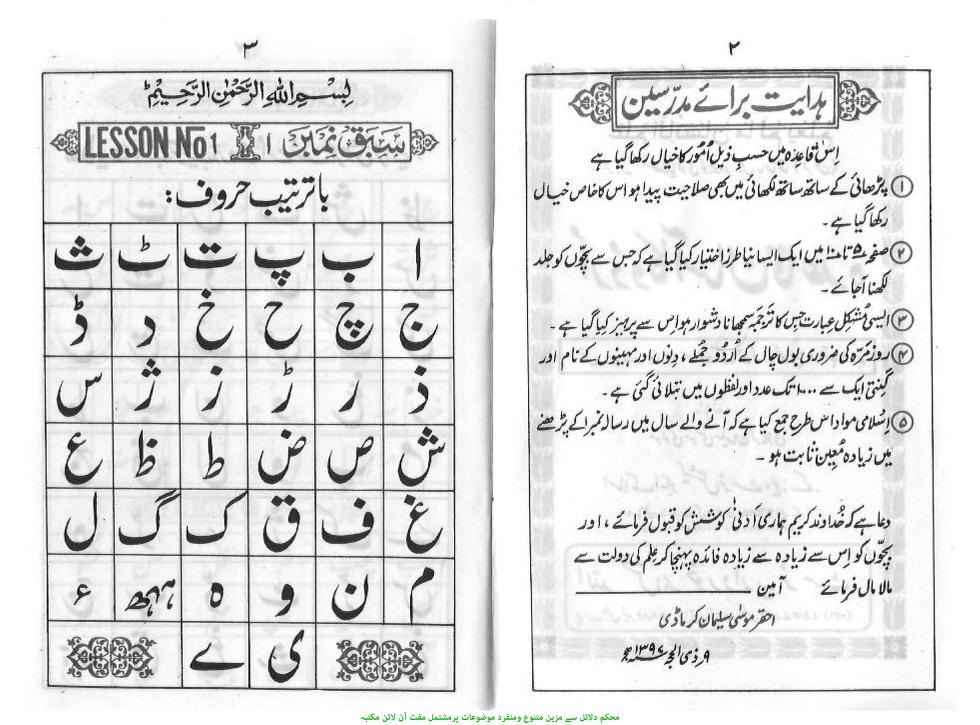 ۲
ہدایت برائے مدرسین
اِس قاعدہ میں حسبِ ذیل اُمُور کا خیال رکھا گیا ہے
۱ پڑھائی کے ساتھ ساتھ لکھائی میں بھی صلاحیت پیدا ہو اس کا خاص خیال
رکھا گیا ہے ۔
۲ صفحہ ۵ تا ۱۰ میں ایک ایسا نیا طرز اختیار کیا گیا ہے کہ جس سے بچّوں کو جلد
لکھنا آجائے ۔
۳ ایسی مُشکِل عبارت جِس کا ترجَمہ سمجھانا دشوار ہو اِس سے پرہیز کیا گیا ہے ۔
۴ روزمَرّہ کی ضروری بول چال کے اُردُو جُملے ، دِنوں اور مہینوں کے نام اور
گِنتی ایک سے ۱۰۰۰۰ تک عدد اور لفظوں میں بتلائی گئی ہے ۔
۵ اِسلامی مواد اس طرح جمع کیا ہے کہ آنے والے سال میں رسالہ نمبر۱ کے پڑھنے
میں زیادہ مُعِین ثابت ہو ۔
دعا ہے کہ خُداوند کریم ہماری اَدنیٰ کوشش کو قبول فرمائے ، اور
بچّوں کو اِس سے زیادہ سے زیادہ فائدہ پہنچا کر عِلم کی دولت سے
مالا مال فرمائے آمین
احقر موسٰی سلیمان کرماڈی
۹ ذی الحجہ ۱۳۹۶ھ
۳
بِسْمِ اللهِ الرَّحْمٰنِ الرَّحِيْمِ
سبق نمبر ۱ LESSON No 1
با ترتیب حروف :
ا ب پ ت ٹ ث
ج چ ح خ د ڈ
ذ ر ڑ ز ژ س
ش ص ض ط ظ ع
غ ف ق ک گ ل
م ن و ہ ہھ ء
ی ے
محکم دلائل سے مزین متنوع ومنفرد موضوعات پر مشتمل مفت آن لائن مکتبہ